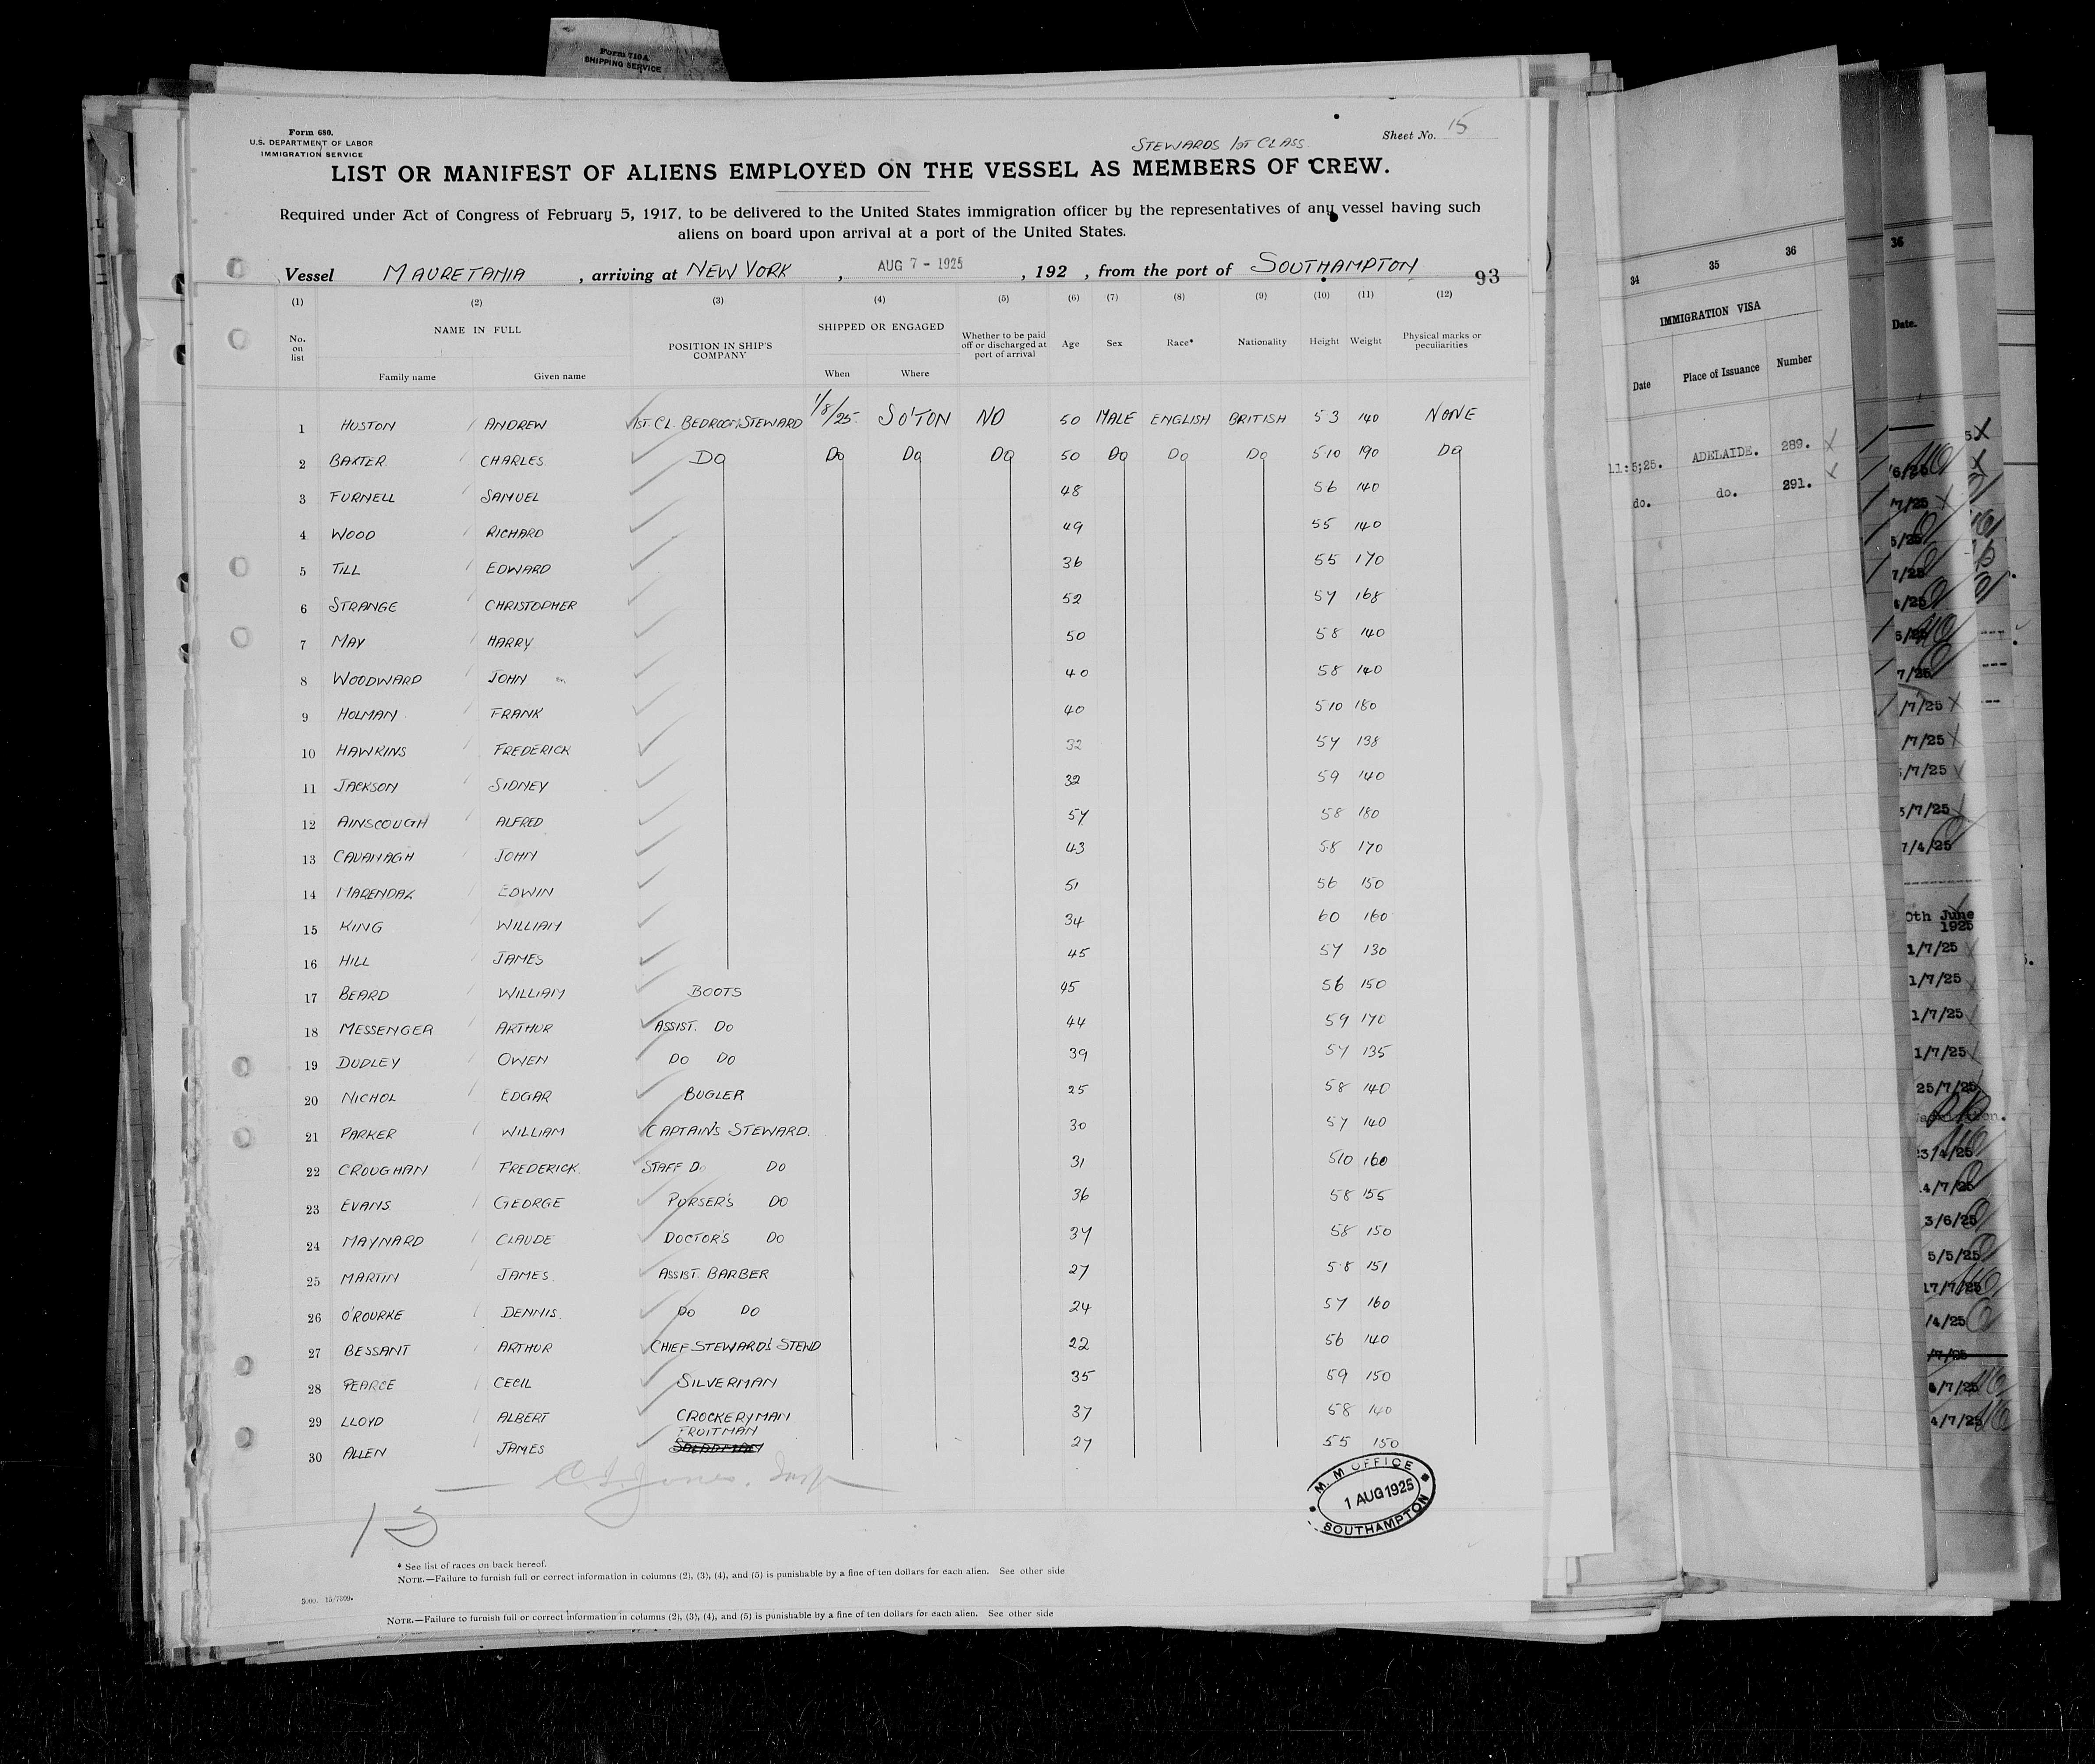 Form 719A
SHIPPING SERVICE
Form 680.
U.S. DEPARTMENT OF LABOR
IMMIGRATION SERVICE
STEWARDS 1ST CLASS. Sheet No. 15
LIST OR MANIFEST OF ALIENS EMPLOYED ON THE VESSEL AS MEMBERS OF CREW.
Required under Act of Congress of February 5, 1917, to be delivered to the United States immigration officer by the representatives of any vessel having such
aliens on board upon arrival at a port of the United States.
Vessel MAURETANIA, arriving at NEW YORK, AUG 7 - 1925, 192 , from the port of SOUTHAMPTON 93
(1) (2) (3) (4) (5) (6) (7) (8) (9) (10) (11) (12)
No. on list NAME IN FULL POSITION IN SHIP'S COMPANY SHIPPED OR ENGAGED Whether to be paid off or discharged at port of arrival Age Sex Race* Nationality Height Weight Physical marks or peculiarities
Family name Given name When Where
1 HUSTON ANDREW 1ST. CL. BEDROOM STEWARD 1/8/25. SO'TON NO 50 MALE ENGLISH BRITISH 5 3 140 NONE
2 BAXTER CHARLES DO DO DO DO 50 DO DO DO 5 10 190 DO
3 FURNELL SAMUEL 48 5 6 140
4 WOOD RICHARD 49 5 5 140
5 TILL EDWARD 36 5 5 170
6 STRANGE CHRISTOPHER 52 5 7 168
7 MAY HARRY 50 5 8 140
8 WOODWARD JOHN 40 5 8 140
9 HOLMAN FRANK 40 5 10 180
10 HAWKINS FREDERICK 32 5 7 138
11 JACKSON SIDNEY 32 5 9 140
12 AINSCOUGH ALFRED 57 5 8 180
13 CAVANAGH JOHN 43 5 8 170
14 MARENDAZ EDWIN 51 5 6 150
15 KING WILLIAM 34 6 0 160
16 HILL JAMES 45 5 7 130
17 BEARD WILLIAM BOOTS 45 5 6 150
18 MESSENGER ARTHUR ASSIST. DO 44 5 9 170
19 DUDLEY OWEN DO DO 39 5 7 135
20 NICHOL EDGAR BUGLER 25 5 8 140
21 PARKER WILLIAM CAPTAIN'S STEWARD. 30 5 7 140
22 CROUGHAN FREDERICK. STAFF DO DO 31 5 10 160
23 EVANS GEORGE PURSER'S DO 36 5 8 155
24 MAYNARD CLAUDE DOCTOR'S DO 37 5 8 150
25 MARTIN JAMES. ASSIST. BARBER 27 5 8 151
26 O'ROURKE DENNIS. DO DO 24 5 7 160
27 BESSANT ARTHUR CHIEF STEWARD'S STEWD 22 5 6 140
28 PEARCE CECIL SILVERMAN 35 5 9 150
29 LLOYD ALBERT CROCKERYMAN 37 5 8 140
FRUITMAN
30 ALLEN JAMES SALADMAN 27 5 5 150
Jones. Insp
M. M OFFICE
1 AUG 1925
SOUTHAMPTON
15
* See list of races on back hereof.
NOTE.—Failure to furnish full or correct information in columns (2), (3), (4), and (5) is punishable by a fine of ten dollars for each alien. See other side
NOTE.—Failure to furnish full or correct information in columns (2), (3), (4), and (5) is punishable by a fine of ten dollars for each alien. See other side
34 35 36
IMMIGRATION VISA
Date Place of Issuance Number
11:5;25. ADELAIDE. 289.
do. do. 291.
36
Date.
0th June
1925
1/7/25
1/7/25
1/7/25
1/7/25
25/7/25